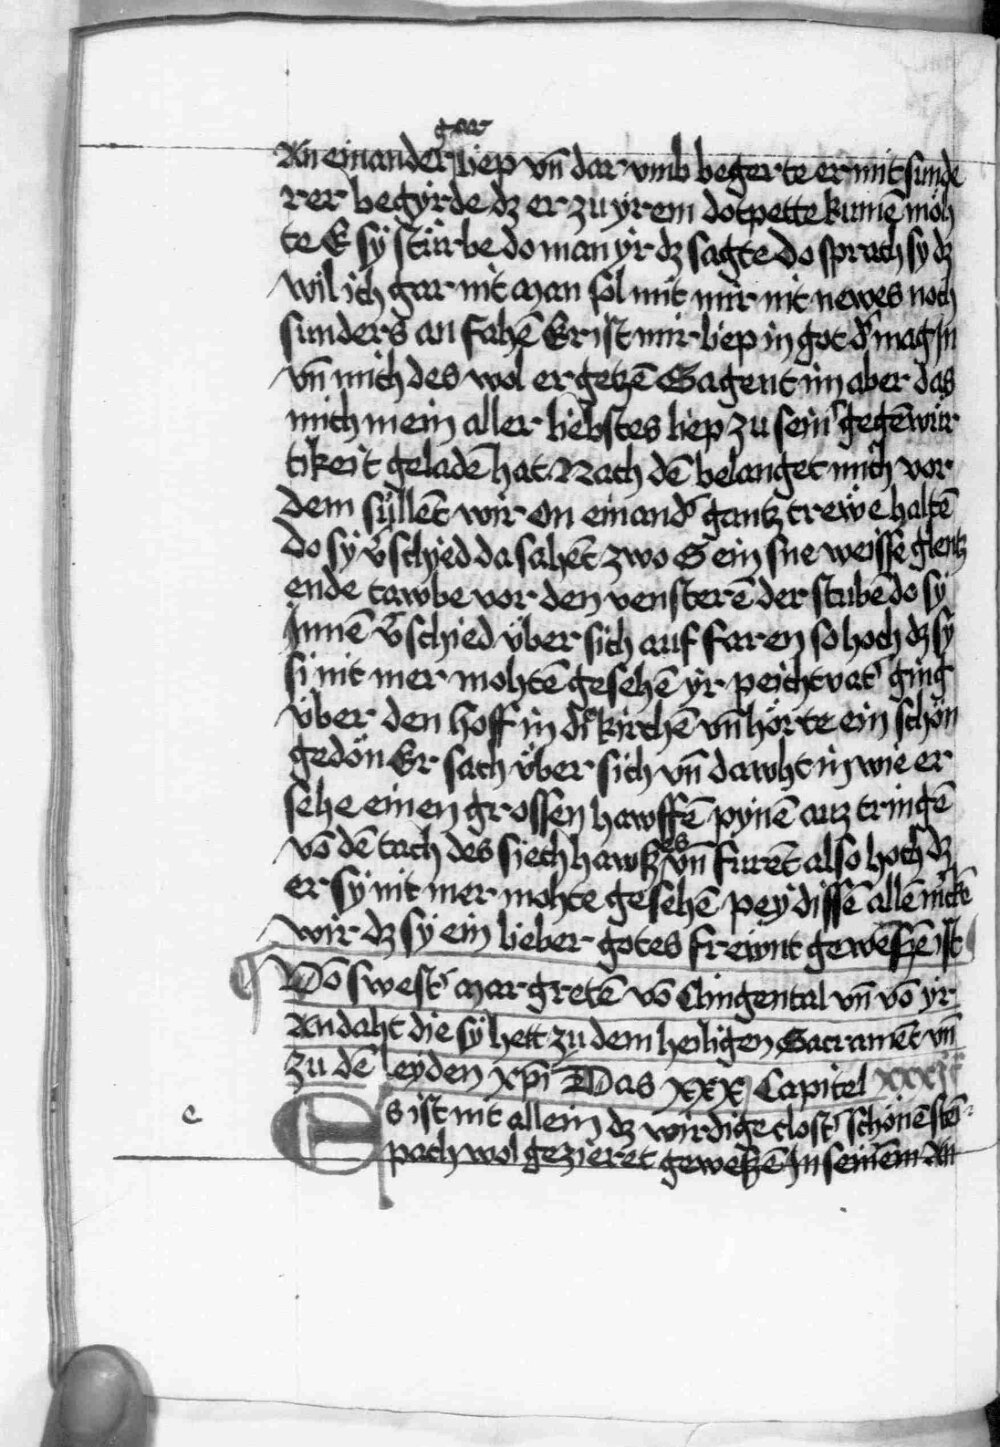 gar
An einander liep vn̄ dar vmb begerte er mit sunde
rer begyrde dz er zu yrem dotpette kumē möh
te E sÿ stürbe do man yr dz sagte do sprach sy dz
wil ich gar nit man sol mit mir nit newes noch
sunders an fahē Er ist mir liep in got d' mag in
vn̄ mich des wol ergetzē Sagent im aber das
mich mein aller liebstes liep zu sein' gegēwür
tikeit geladē hat Nach dē belanget mich vor
dem süllēt wir on einand' gantz trewe haltē
do sÿ v'schied da sahēt zwo Sein sne weisse glentz
ende tawbe vor den vensterē der stubē do sÿ
Innē v'schied über sich auf faren so hoch dz sÿ
si nit mer mohtē gesehē yr peichtvat' ging
über den hoff in di kirchē vn̄ hörte ein schön
gedön Er sach über sich vn̄ dawht in wie er
sehe einen grossen hawffē pynē auz tringē
vō dē tach des siechhawses vn̄ furēt also hoch dz
er sÿ nit mer mohte gesehē pey dissē allē mckē
wir dz sÿ ein lieber gotes frewnt gewesē ist
Vō swest' margretē vō Clingental vn̄ vō yr
Andaht die sÿ hett zu dem heiligen Sacramēt vn̄
zu dē leyden xp̄i Das xxx Capitel xxxij
e
Es ist nit allein dz wirdige clost' schönēstē
pach wol gezieret gewesē In seinēm An